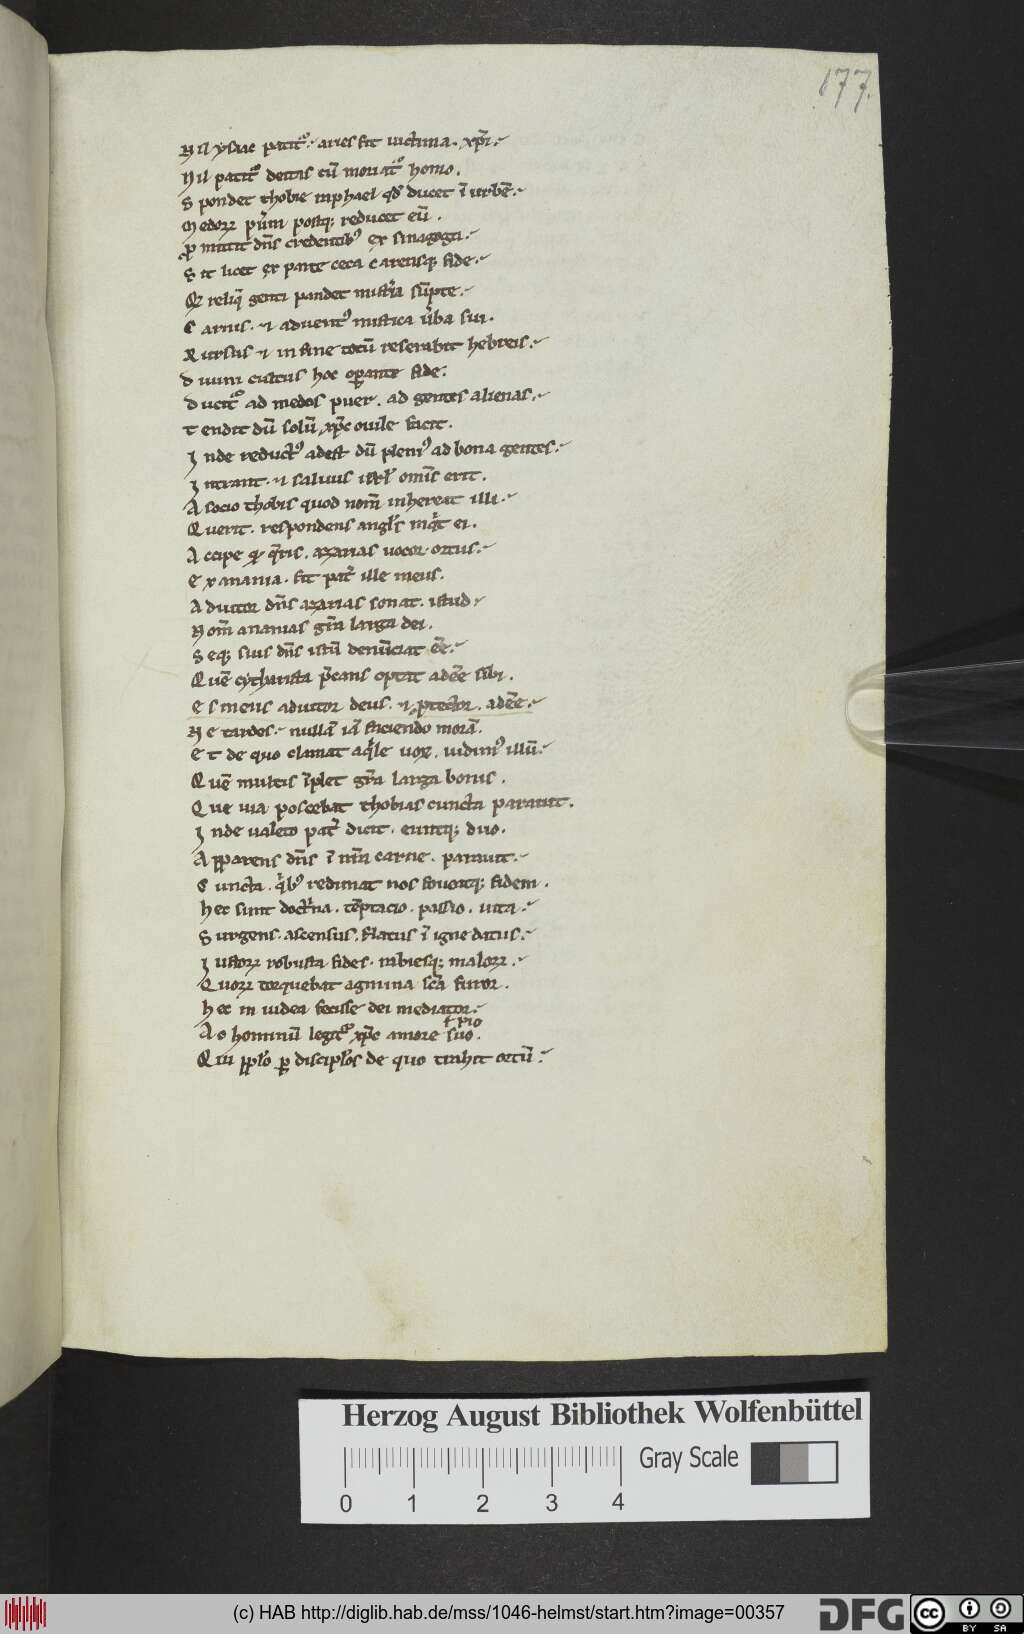 177.
Nil ysaac patit᷒. aries fit victima. xp̄i.
Nil patit᷒ deitas cū moriat᷒ homo.
Spondet thobie raphael qd̄ ducet ī urbē.
Medoꝝ p̄im postq; reducet eū.
ꝓmittit dn̄s credentib᷒ ex sinagoga.
Sit licet ex parte ceca carensq; fide.
Qd reliq̄ genti pandet misťia sūpte.
Carnis. ⁊ advent᷒ mistica v̄ba sui.
Rursus ⁊ in fine totū reserabit hebreis.
Divini cultus hoc oꝑante fide.
Ducit᷒ ad medos puer. ad gentes alienas.
Tendit dū solū xp̄c ovile facit.
Inde reduct᷒ adest dū pleni᷒ ad bona gentes.
Intrant. ⁊ salvus isrl̄ omīs erit.
A socio thobis quod nom̄ inhereat illi.
Querit. respondens angl̄s inq̇t ei.
Accipe q̄ q̄ris. azarias vocor ortus.
Ex anania. sit pat̄ ille meus.
Adiutor dn̄s azarias sonat. istud
Nom̄ ananias gr̄a larga dei.
Seq; suis dn̄s istū denūciat eē.
Quē cytharista p̄cans optat adeē sibi.
Es meus adiutor deus. ⁊ ꝓtector. adeē.
Ne tardes. nullā iā faciendo morā.
Et de quo clamat aq̇le vox. vidim᷒ illū.
Quē multis īplet gr̄a larga bonis.
Que via poscebat thobias cuncta paravit.
Inde valeto pat̄ dicit. euntq; duo.
Apparens dn̄s ī nr̄a carne. paravit.
Cuncta. q̇b᷒ redimat nos fovoatq; fidem.
Hec sunt doct̄na. tēptacio. passio. vita.
Surgens. ascensus. flatus ī igne datus.
Iustoꝝ robusta fides. rabiesq; maloꝝ.
Quoꝝ torquebat agmina sc̄a furor.
Hec in iudea fecisse dei mediator.
Ac hominū legit᷒ xp̄c amore suo.
ł pio
Qui pp̄lo ꝑ discipl̄os de quo trahit ortū.
Herzog August Bibliothek Wolfenbüttel
Gray Scale
0 1 2 3 4
(c) HAB http://diglib.hab.de/mss/1046-helmst/start.htm?image=00357
DFG
cc BY SA